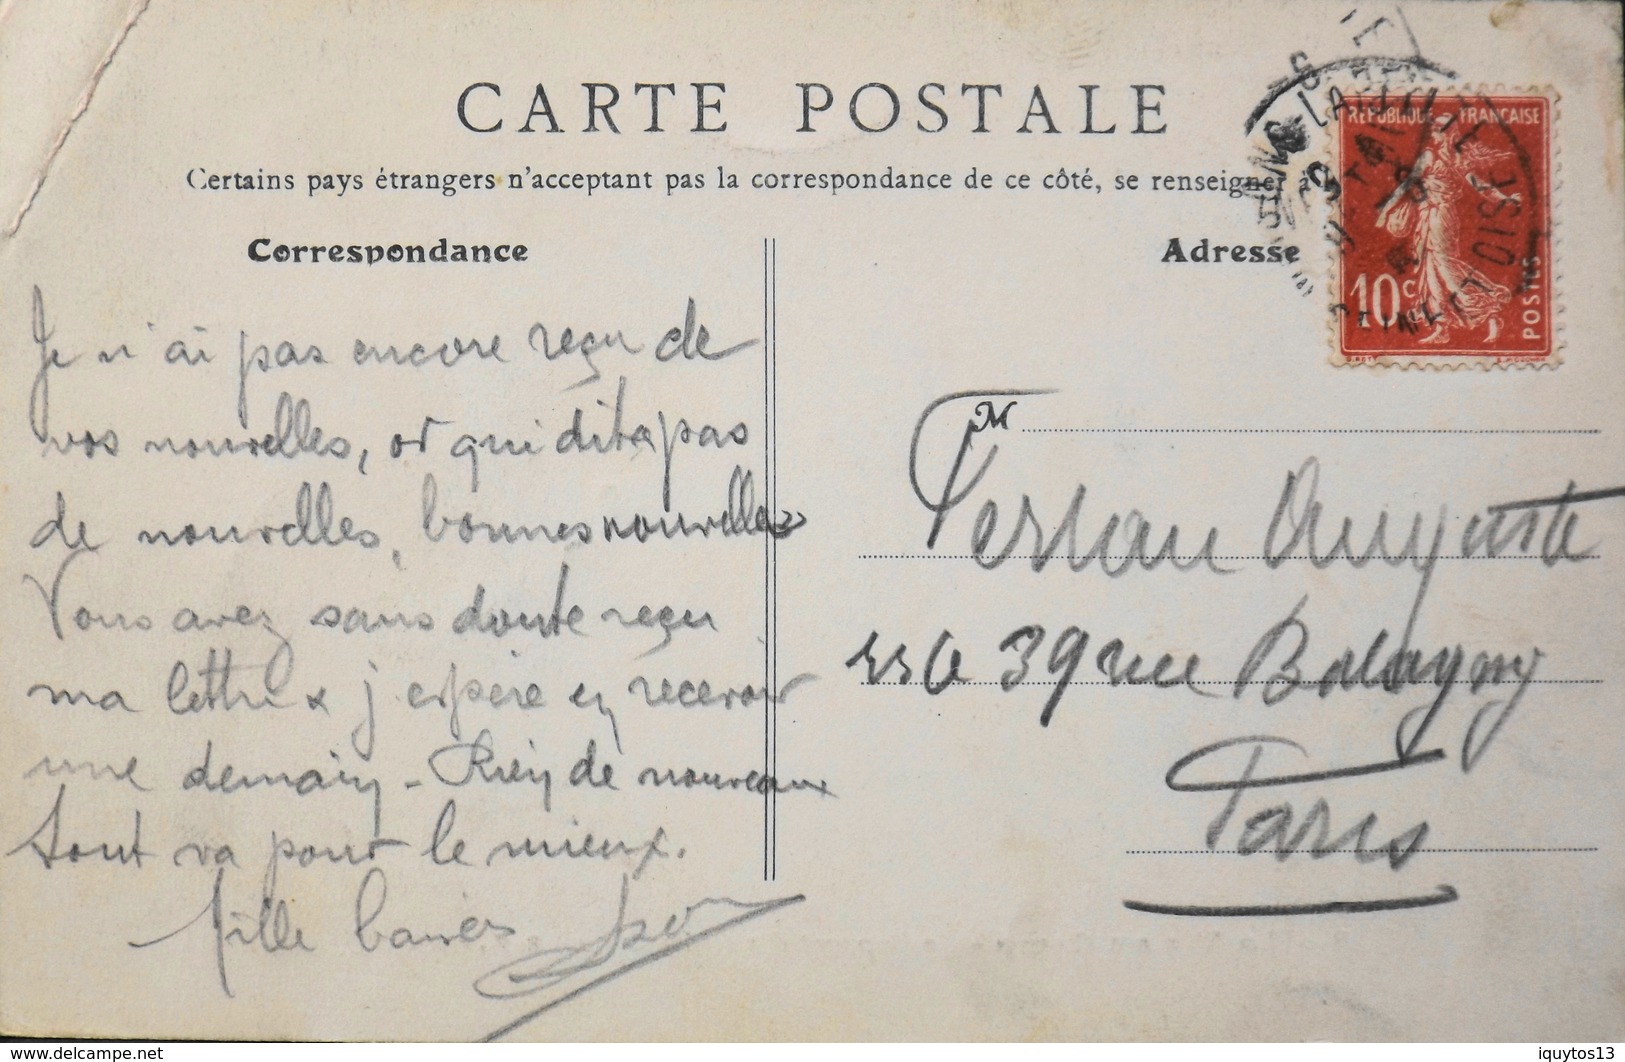 CARTE POSTALE
Certains pays étrangers n'acceptant pas la correspondance de ce côté, se renseigner à
Correspondance
Adresse
REPUBLIQUE FRANCAISE
10 c
POSTES
OISE
Je n'ai pas encore reçu de
vos nouvelles, or qui dit pas
de nouvelles, bonnes nouvelles
Vous avez sans doute reçu
ma lettre & j'espère en recevoir
une demain - Rien de nouveau
tout va pour le mieux.
Mille baisers
M
Auguste
39 rue Balagny
Paris
delcampe.net
iquytos13